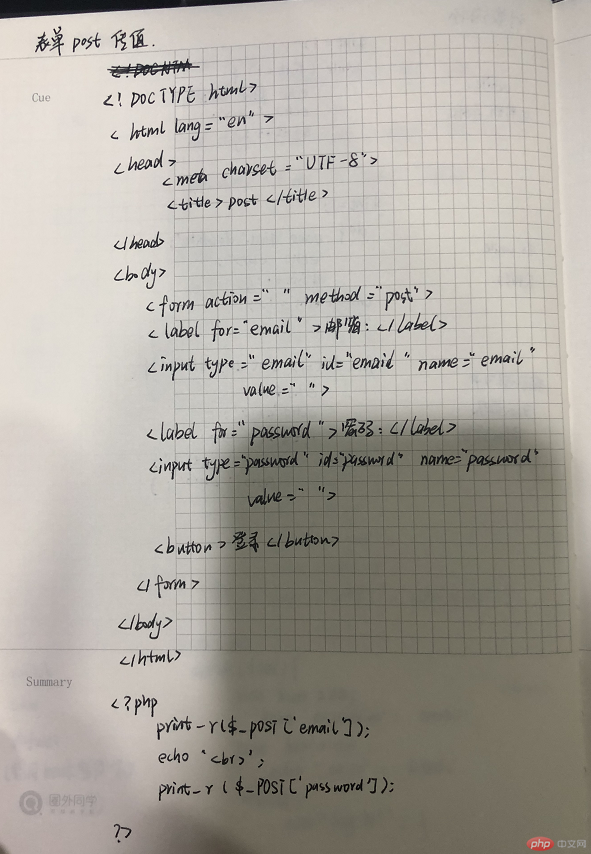 表单 post 传值.
<!DOC HTM
Cue
<! DOCTYPE html>
< html lang="en" >
<head>
<meta charset="UTF-8">
<title>post</title>
</head>
<body>
<form action=" " method="post">
< label for="email" >邮箱:</label>
<input type="email" id="emaid" name="email"
value=" ">
<label for="password">密码:</label>
<input type="password" id="password" name="password"
value=" ">
<button>登录</button>
</form>
</body>
</html>
Summary
<?php
print-r($_POST['email']);
echo '<br>';
print_r ($_POST['password']);
圈外同学
?>
php 中文网